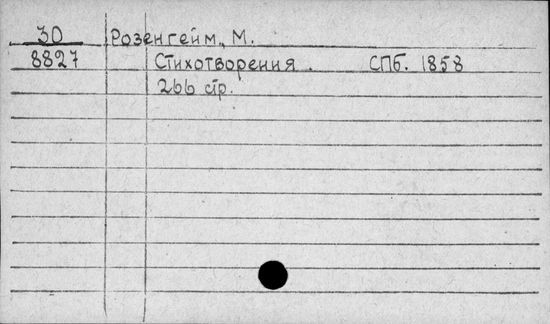 30 Розенгейм, М.
8827 Стихотворения. СПб. 1858
266 стр.